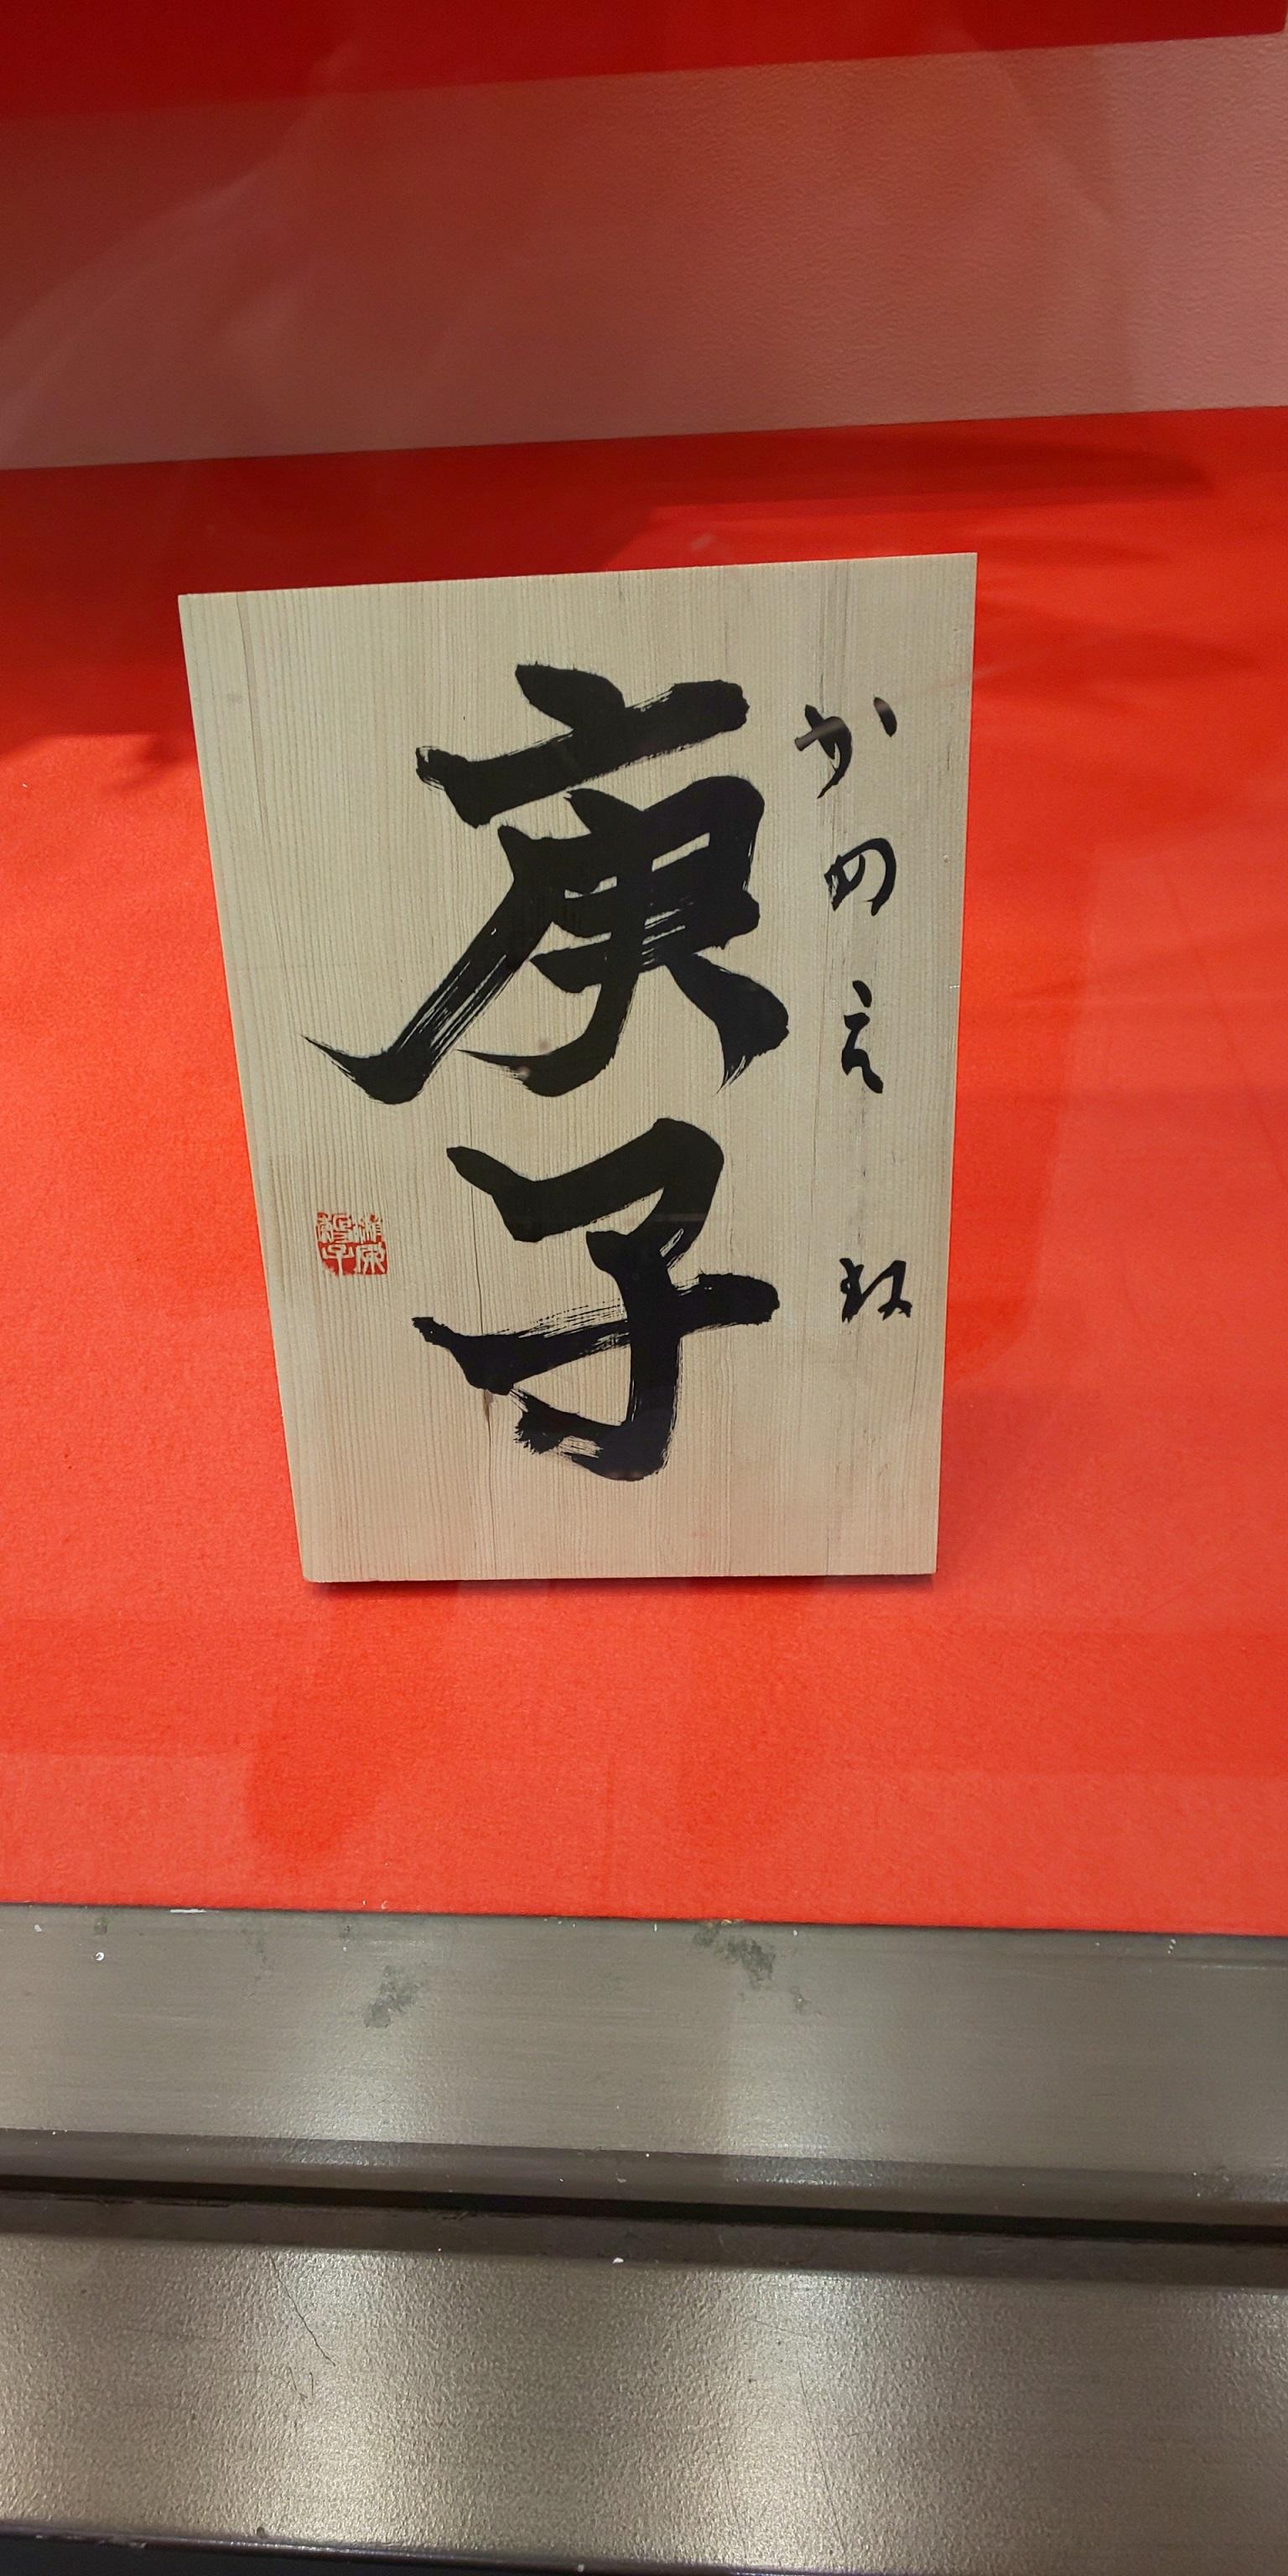 かのえ ね
庚子